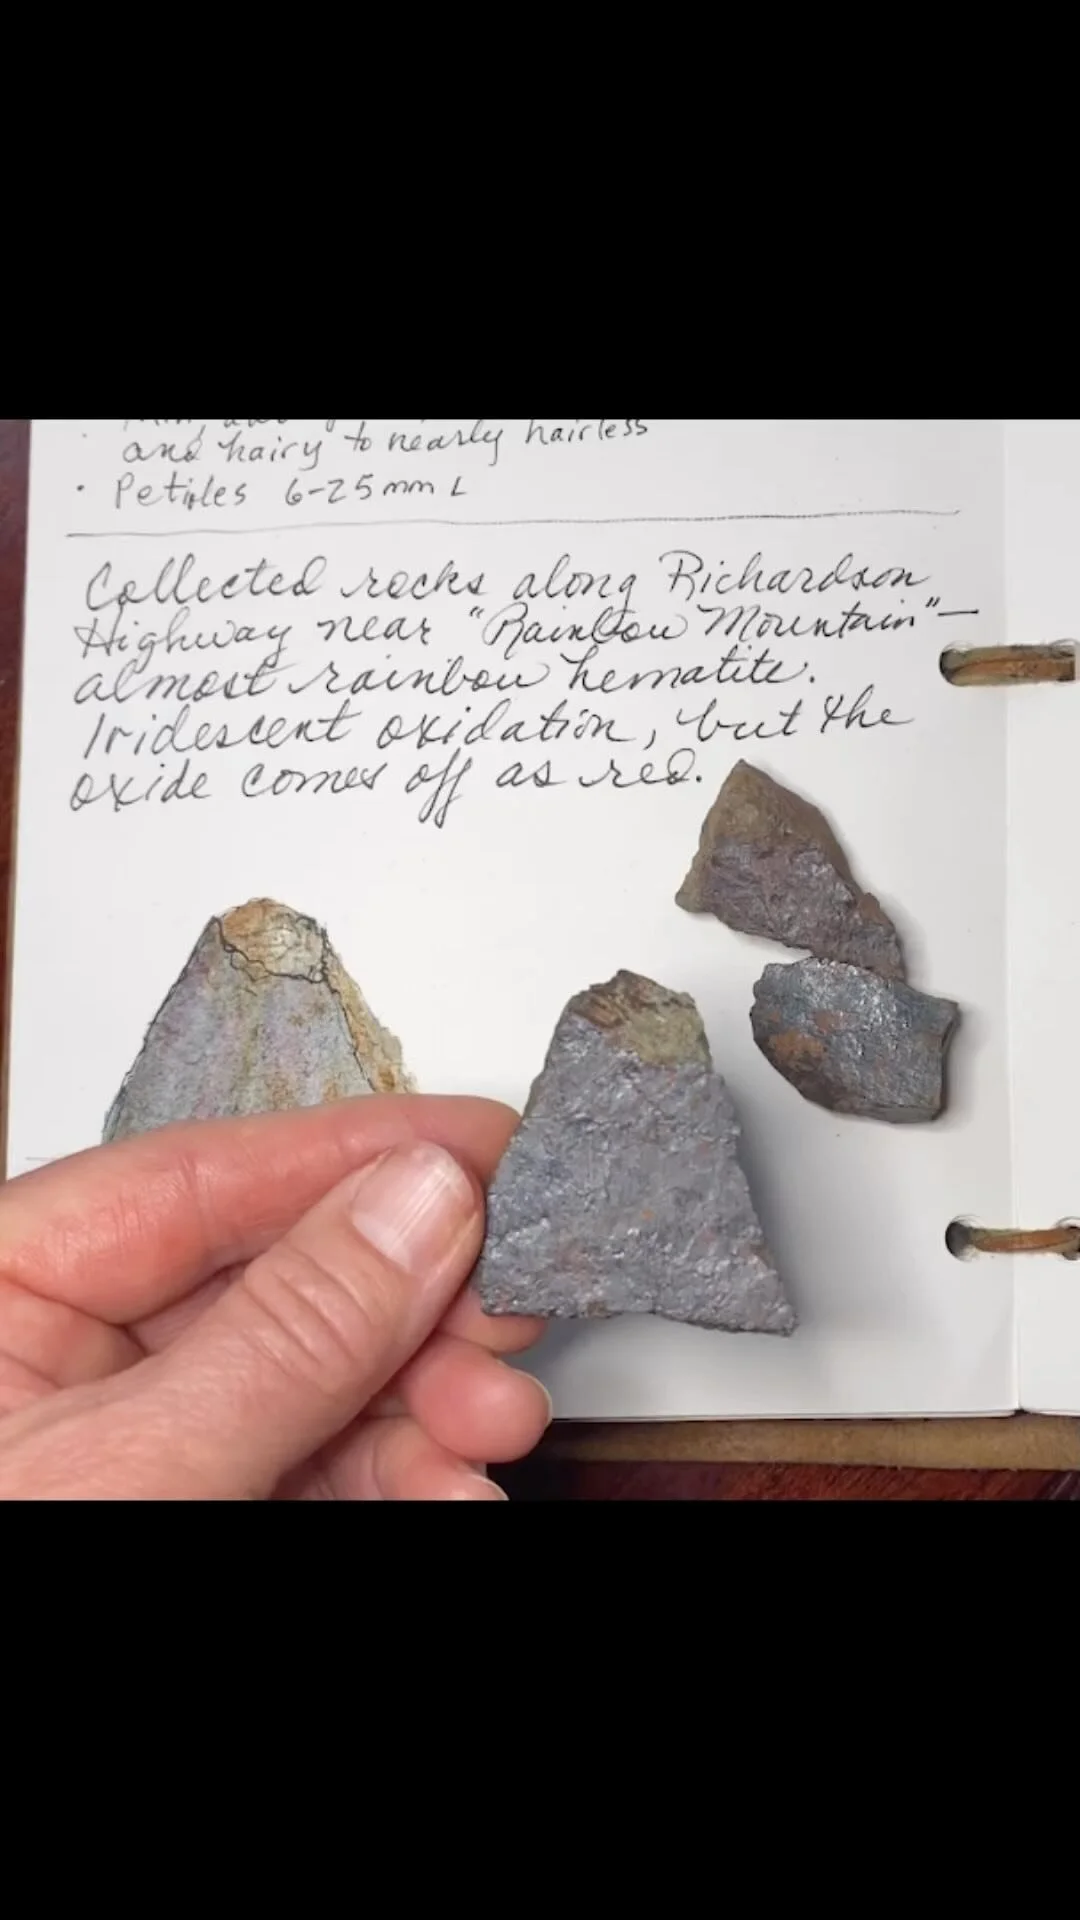 and hairy to nearly hairless
• Petioles 6-25mm L
Collected rocks along Richardson
Highway near "Rainbow Mountain"—
almost rainbow hematite.
Iridescent oxidation, but the
oxide comes off as red.